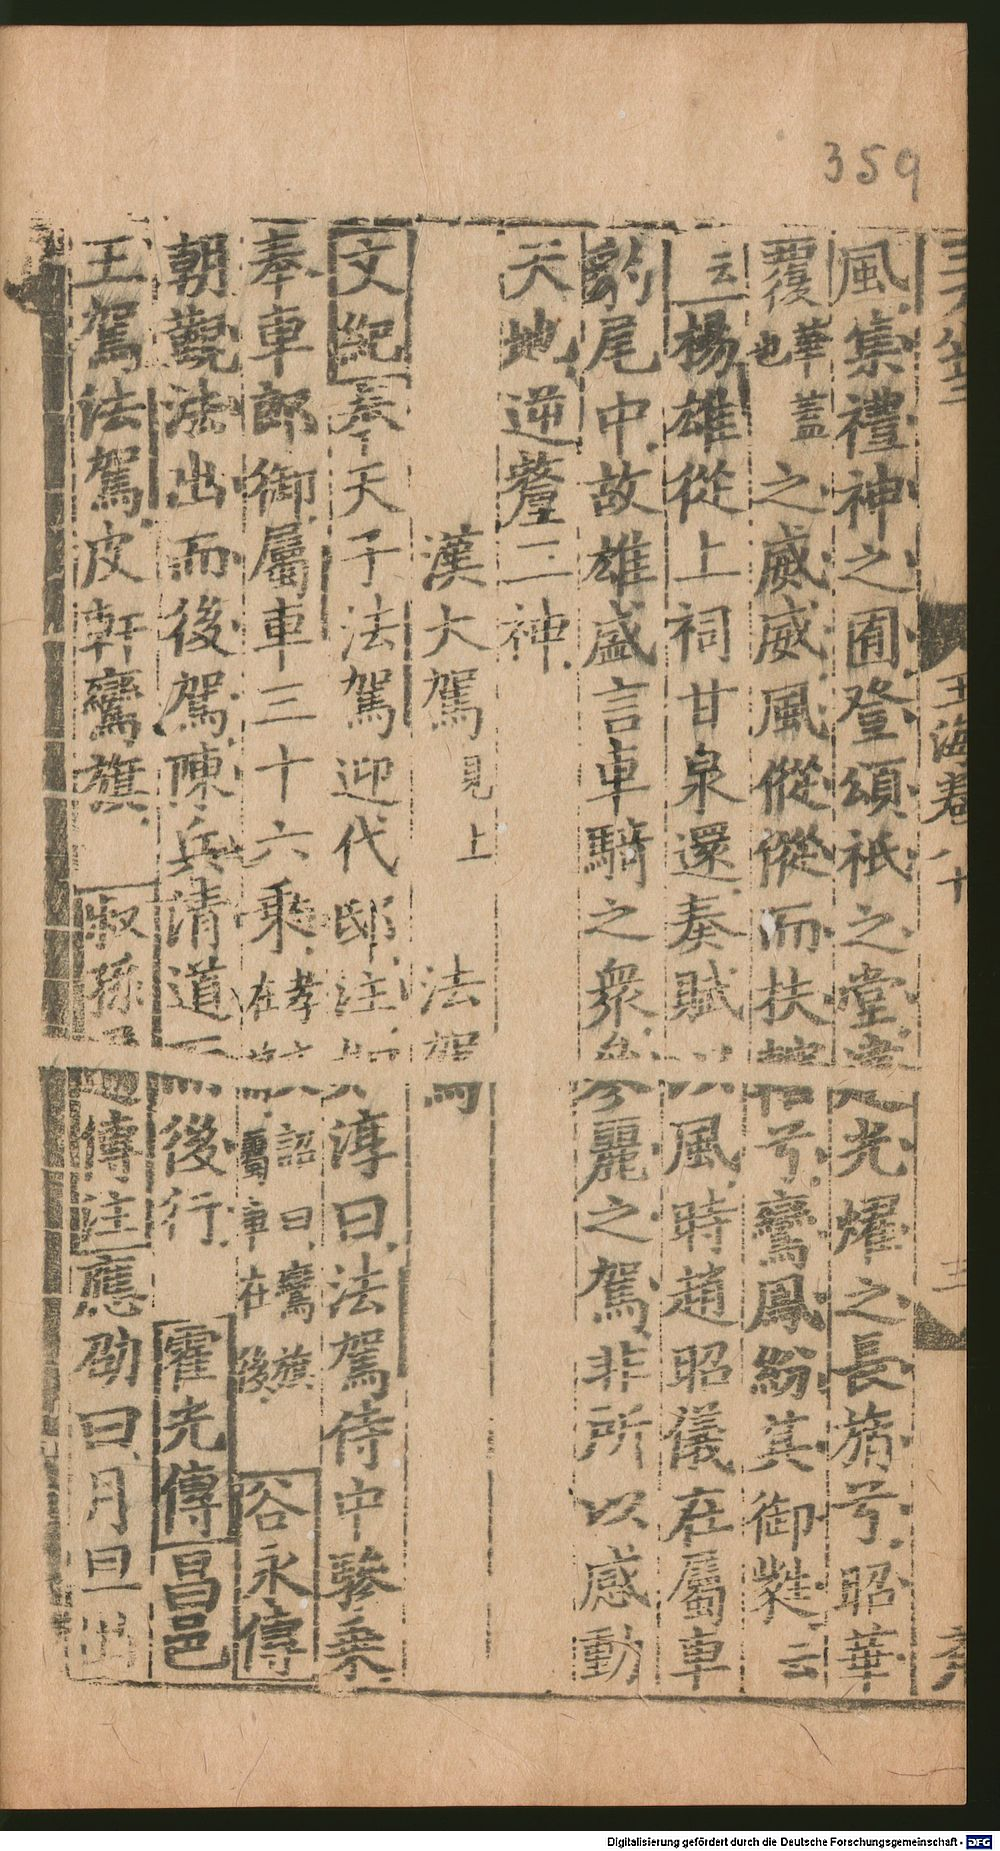 359
玉海卷八十
三
風集禮神之囿登頌祇之堂光耀之長旓兮昭華
覆華蓋也之威威風傱傱而扶轄兮鸞鳳紛其御蕤云
云楊雄從上祠甘泉還奏賦以風時趙昭儀在屬車
豹尾中故雄盛言車騎之衆參麗之駕非所以感動
天地逆釐三神
漢大駕見上 法駕
文紀奉天子法駕迎代邸注如淳曰法駕侍中驂乘
奉車郎御屬車三十六乘在後屬車在鸞旗後 谷永傳
朝覲法出而後駕陳兵清道而後行 霍光傳昌邑
王駕法駕皮軒鸞旗 叔孫通傳注應劭曰月旦出
Digitalisierung gefördert durch die Deutsche Forschungsgemeinschaft - DFG